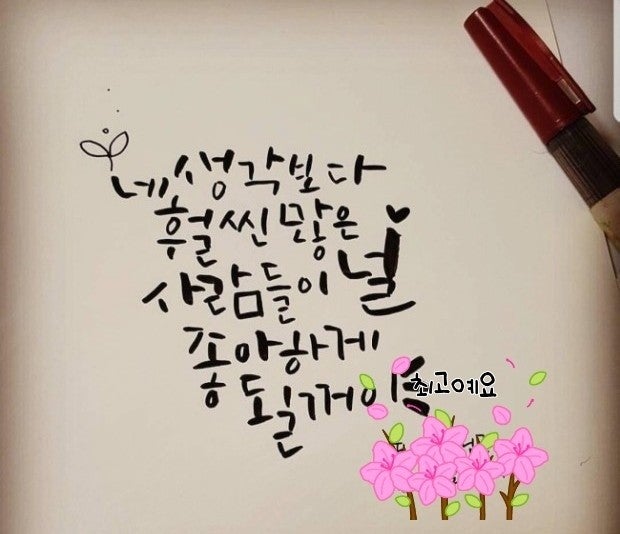 네 생각보다
훨씬 많은
사람들이 널
좋아하게
될꺼야
최고예요